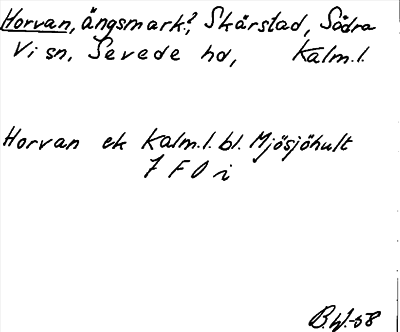 Horvan, ängsmark?, Skårstad, Södra
Vi sn, Sevede hd, Kalm.l.
Horvan ek Kalm.l. bl. Mjösjöhult
7 F 0 i
B.W.-58